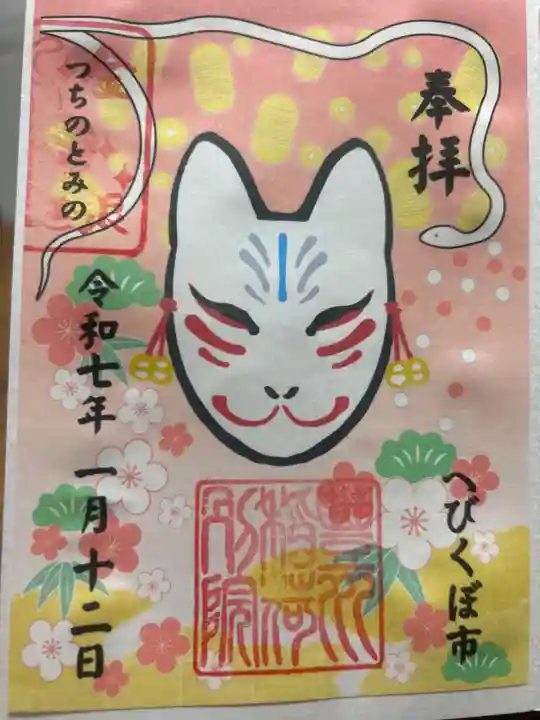 奉拝
へびくぼ市
豊川
稲荷
別院
つちのとみの
令和七年 一月十二日